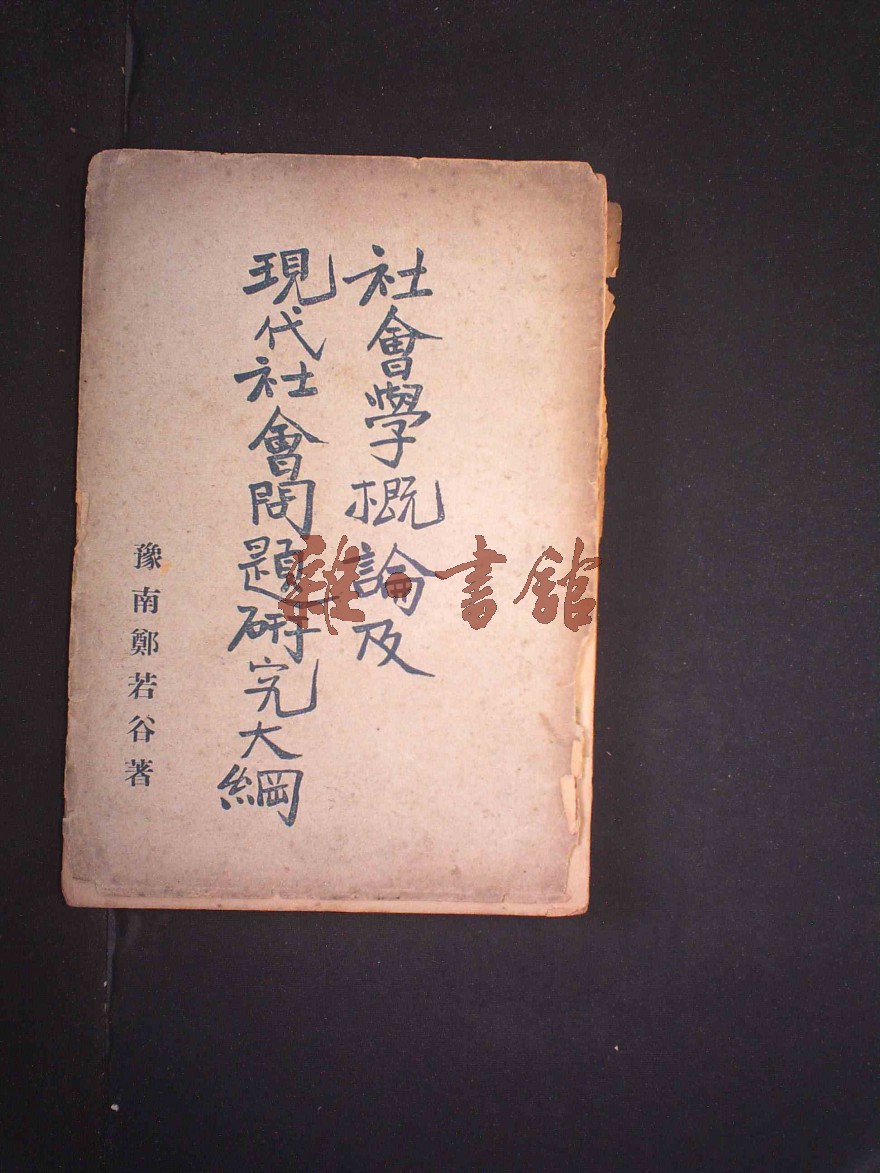 社會學概論及
現代社會問題研究大綱
豫南鄭若谷著
雜·書館